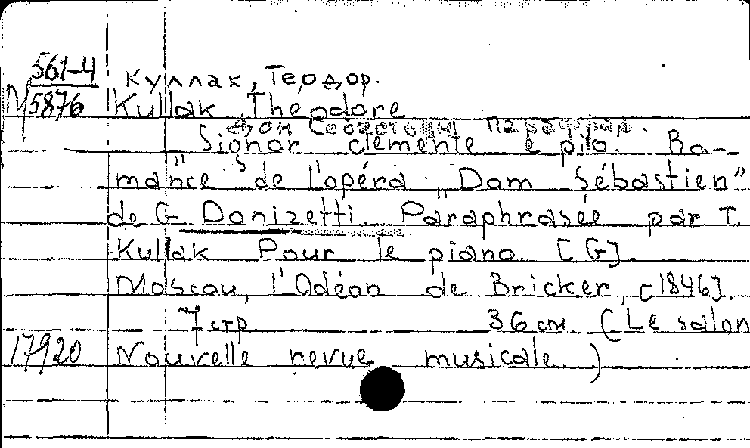 561-4
М 5876
Куллак, Теодор.
Kullak Theodore
Дон Себастьян парафраз.
Signor clemente e pio. Ro-
mance de l'opéra "Dom Sébastien"
de G Donizetti. Paraphrasée par T.
Kullak Pour le piano [G].
Moscou, l'Odéon de Bricker, [1846].
7 стр 36 см (Le salon
17920 Nouvelle revue musicale)